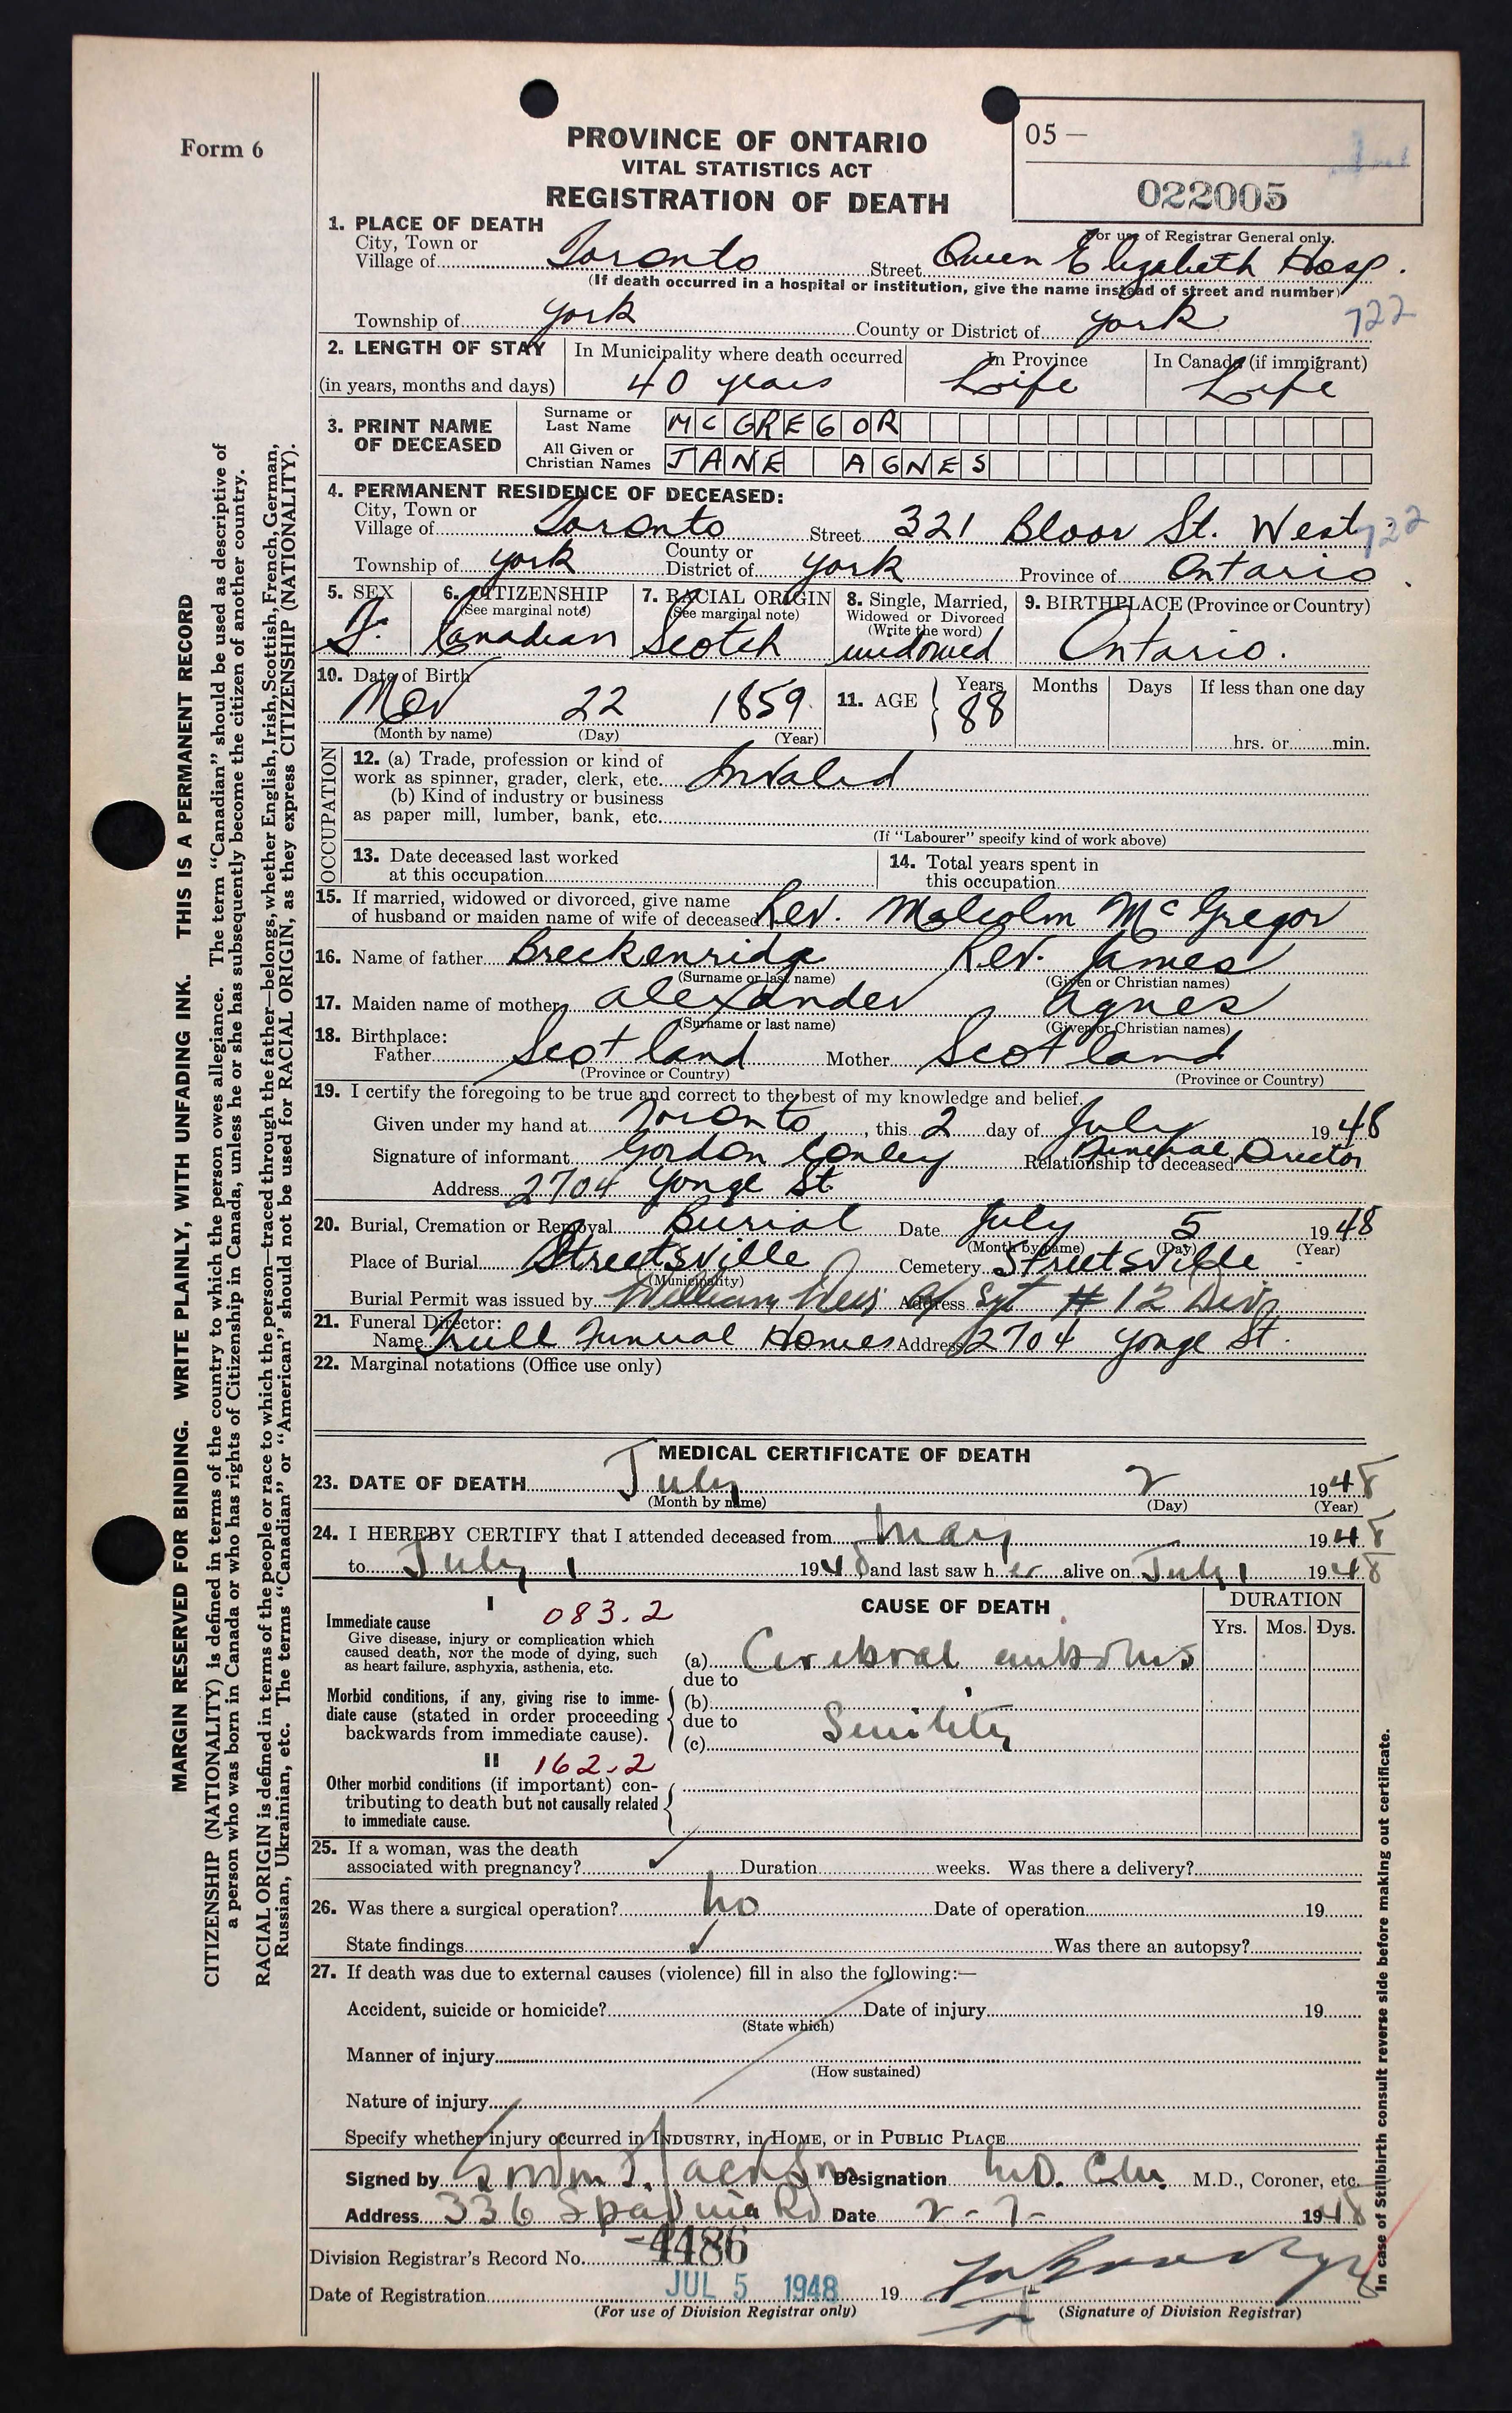 Form 6
PROVINCE OF ONTARIO
VITAL STATISTICS ACT
REGISTRATION OF DEATH
05 —
022005
For use of Registrar General only.
1. PLACE OF DEATH
City, Town or
Village of Toronto Street Queen Elizabeth Hosp.
(If death occurred in a hospital or institution, give the name instead of street and number)
Township of York County or District of York 722
2. LENGTH OF STAY In Municipality where death occurred In Province In Canada (if immigrant)
(in years, months and days) 40 years Life Life
3. PRINT NAME OF DECEASED
Surname or Last Name MCGREGOR
All Given or Christian Names JANE AGNES
4. PERMANENT RESIDENCE OF DECEASED:
City, Town or
Village of Toronto Street 321 Bloor St. West 722
Township of York County or District of York Province of Ontario.
5. SEX 6. CITIZENSHIP 7. RACIAL ORIGIN 8. Single, Married, 9. BIRTHPLACE (Province or Country)
(See marginal note) (See marginal note) Widowed or Divorced
(Write the word)
F. Canadian Scotch widowed Ontario.
10. Date of Birth 11. AGE Years Months Days If less than one day
Nov 22 1859 88
(Month by name) (Day) (Year) hrs. or min.
OCCUPATION
12. (a) Trade, profession or kind of
work as spinner, grader, clerk, etc. Invalid
(b) Kind of industry or business
as paper mill, lumber, bank, etc.
(If "Labourer" specify kind of work above)
13. Date deceased last worked 14. Total years spent in
at this occupation this occupation
15. If married, widowed or divorced, give name
of husband or maiden name of wife of deceased Rev. Malcolm McGregor
16. Name of father Breckenridge Rev. James
(Surname or last name) (Given or Christian names)
17. Maiden name of mother Alexander Agnes
(Surname or last name) (Given or Christian names)
18. Birthplace:
Father Scotland Mother Scotland
(Province or Country) (Province or Country)
19. I certify the foregoing to be true and correct to the best of my knowledge and belief.
Given under my hand at Toronto, this 2 day of July 1948
Signature of informant Gordon Conley Relationship to deceased Funeral Director
Address 2704 Yonge St
20. Burial, Cremation or Removal Burial Date July 5 1948
(Month by name) (Day) (Year)
Place of Burial Streetsville Cemetery Streetsville
(Municipality)
Burial Permit was issued by William Address Sgt # 12 Div
21. Funeral Director:
Name Trull Funeral Homes Address 2704 Yonge St.
22. Marginal notations (Office use only)
MEDICAL CERTIFICATE OF DEATH
23. DATE OF DEATH July 2 1948
(Month by name) (Day) (Year)
24. I HEREBY CERTIFY that I attended deceased from May 1948
to July 1 1948 and last saw her alive on July 1 1948
I 083.2 CAUSE OF DEATH DURATION
Immediate cause Yrs. Mos. Dys.
Give disease, injury or complication which
caused death, NOT the mode of dying, such
as heart failure, asphyxia, asthenia, etc.
(a) Cerebral embolus
due to
Morbid conditions, if any, giving rise to imme-
diate cause (stated in order proceeding
backwards from immediate cause).
(b)
due to Senility
(c)
II 162.2
Other morbid conditions (if important) con-
tributing to death but not causally related
to immediate cause.
25. If a woman, was the death
associated with pregnancy? ✓ Duration weeks. Was there a delivery?
26. Was there a surgical operation? no Date of operation 19
State findings ✓ Was there an autopsy?
27. If death was due to external causes (violence) fill in also the following:—
Accident, suicide or homicide? Date of injury 19
(State which)
Manner of injury
(How sustained)
Nature of injury
Specify whether injury occurred in INDUSTRY, in HOME, or in PUBLIC PLACE
Signed by Jackson Designation M.D. C.M. M.D., Coroner, etc.
Address 336 Spadina Rd Date 2-7- 1948
Division Registrar's Record No. 4486
Date of Registration JUL 5 1948 19
(For use of Division Registrar only) (Signature of Division Registrar)
MARGIN RESERVED FOR BINDING. WRITE PLAINLY, WITH UNFADING INK. THIS IS A PERMANENT RECORD
CITIZENSHIP (NATIONALITY) is defined in terms of the country to which the person owes allegiance. The term "Canadian" should be used as descriptive of
a person who was born in Canada or who has rights of Citizenship in Canada, unless he or she has subsequently become the citizen of another country.
RACIAL ORIGIN is defined in terms of the people or race to which the person—traced through the father—belongs, whether English, Irish, Scottish, French, German,
Russian, Ukrainian, etc. The terms "Canadian" or "American" should not be used for RACIAL ORIGIN, as they express CITIZENSHIP (NATIONALITY).
In case of Stillbirth consult reverse side before making out certificate.